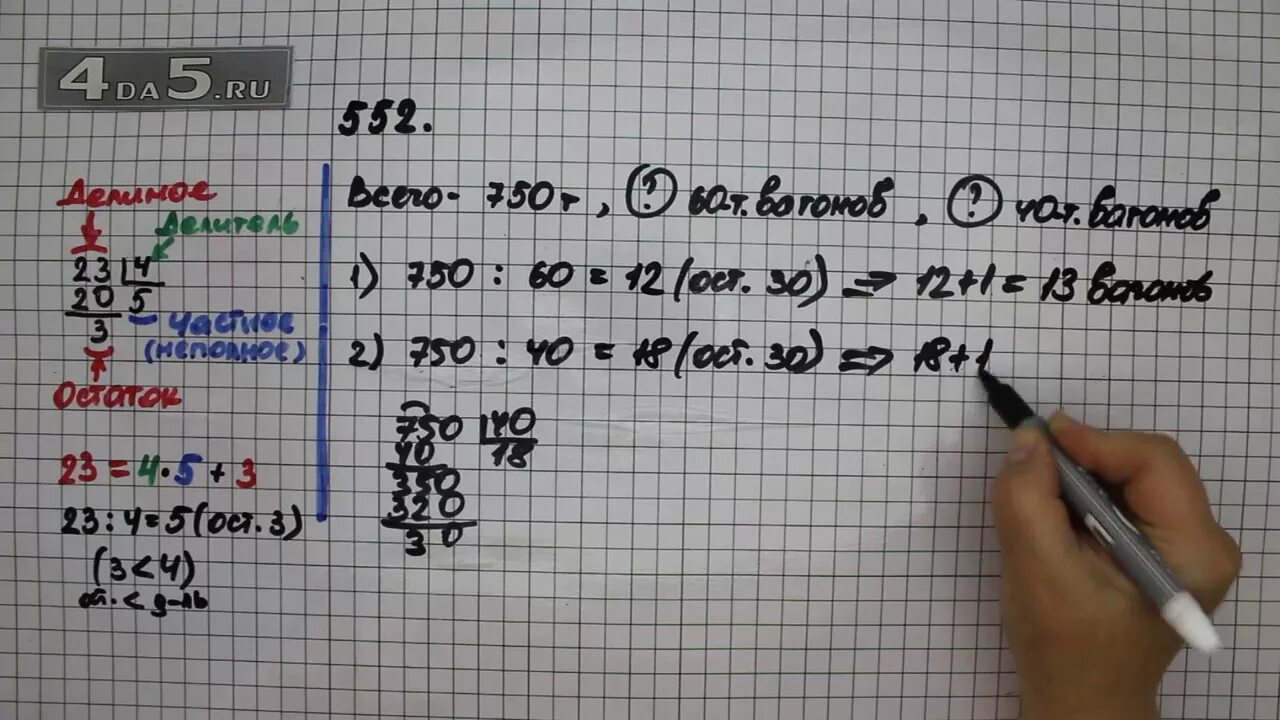 4DA5.RU
552.
Делимое
Делитель
23 4
20 5
3
частное
(неполное)
Остаток
23 = 4 · 5 + 3
23 : 4 = 5 (ост. 3)
(3 < 4)
ост. < д-ль
Всего - 750 т, ? 60-т. вагонов, ? 40-т. вагонов
1) 750 : 60 = 12 (ост. 30) ⇒ 12 + 1 = 13 вагонов
2) 750 : 40 = 18 (ост. 30) ⇒ 18 + 1
750 40
40 18
350
320
30